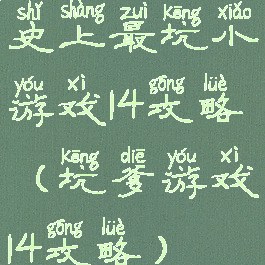 shǐ shàng zuì kēng xiǎo
史上最坑小
yóu xì gōng lüè
游戏14攻略
kēng diē yóu xì
(坑爹游戏
gōng lüè
14攻略)